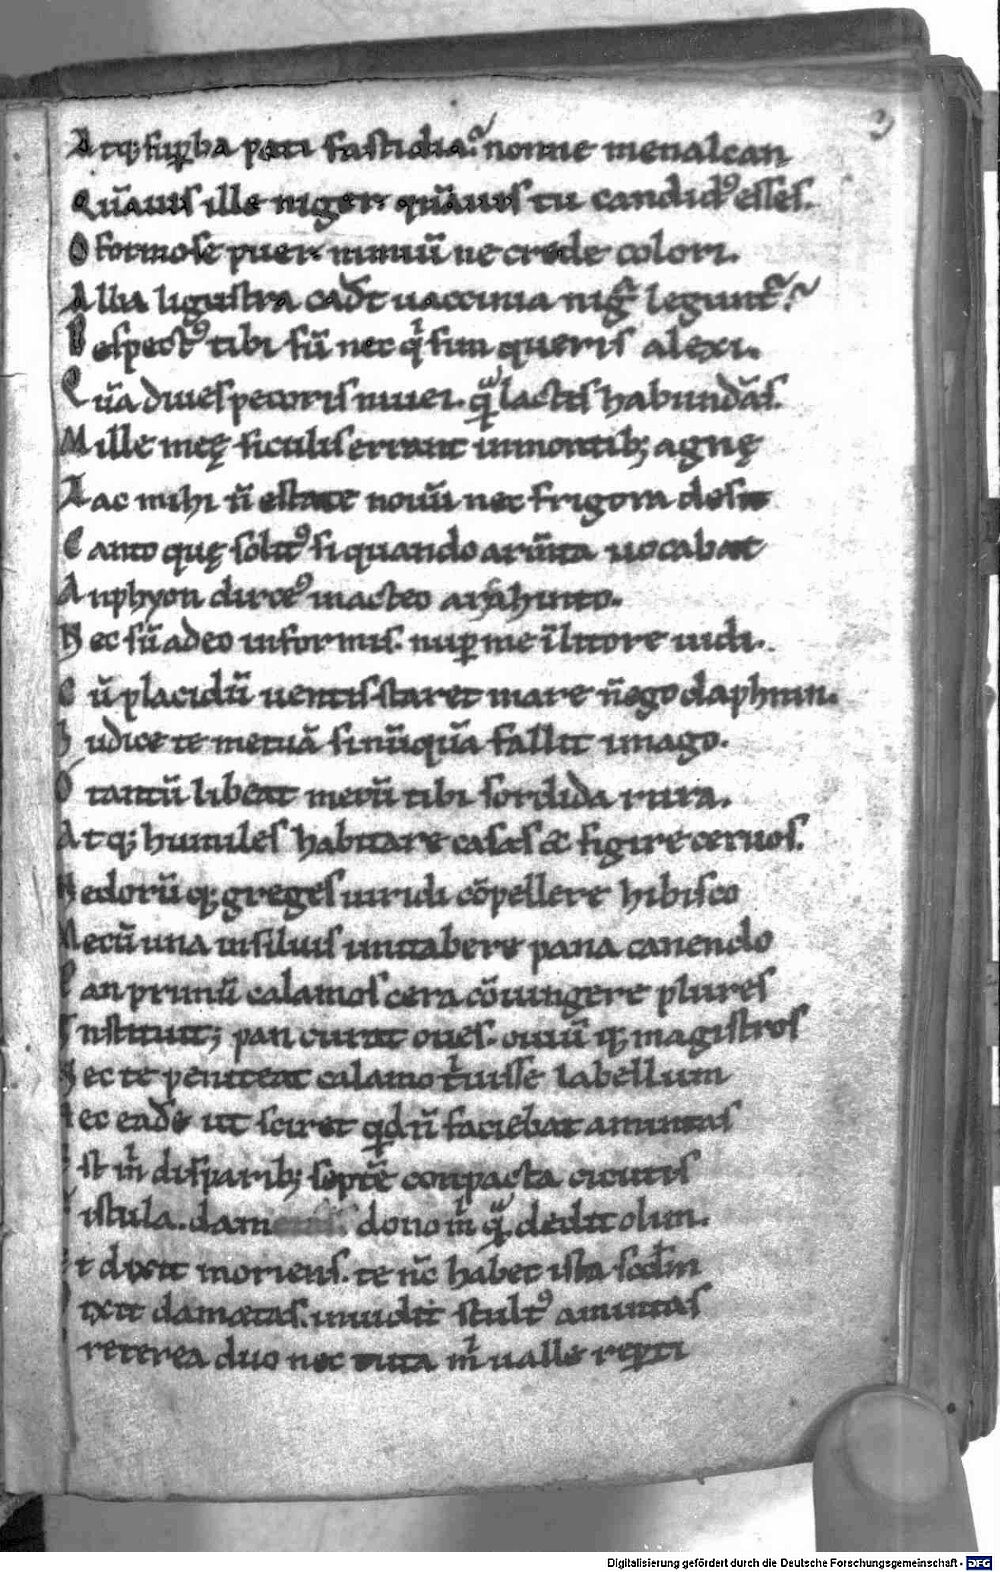 3
Atq; suꝑba pati fastidia? nonne menalcan
Quāuis ille niger. quāuis tu candidꝰ esses.
O formose puer. nimiū ne crede colori.
Alba ligustra cadt̄ uaccinia nigͣ leguntᷣ?
Despectꝰ tibi sū nec qͥ sim queris alexi.
Quā diues pecoris niuei. qͣ̄ lactis habundās.
Mille meę siculis errant inmontib; agnę
Lac mihi n̄ estate nouū nec frigora desit
Canto quę solitꝰ si quando arm̄ta uocabat
Anphyon dirceꝰ inacteo arachinto.
Nec sū adeo informis. nuꝑ me ī litore uidi.
Cū placidū uentis staret mare n̄ ego daphnin.
Iudice te metuā si nūquā fallit imago.
O tantū libeat mecū tibi sordida rura.
Atq; humiles habitare casas & figire ceruos.
Hedorū q; greges uiridi cōpellere hibisco
Mecū una insiluis imitabere pana canendo
Pan primū calamos cera cōiungere plures
Instituit; pan curat oues. ouiū q; magistros
Nec te peniteat calamo tͥuisse labellum
Nec eadē ut sciret qd n̄ faciebat amintas
st m̄ disparib; septē conpacta cicutis
istula. dam dono m̄ qͣ̄ dedit olim.
t dixit moriens. te nc̄ habet ista scdm̄
ixit damætas. inuidit stultꝰ amintas
reterea duo nec tuta m̄ ualle reꝑti
Digitalisierung gefördert durch die Deutsche Forschungsgemeinschaft - DFG